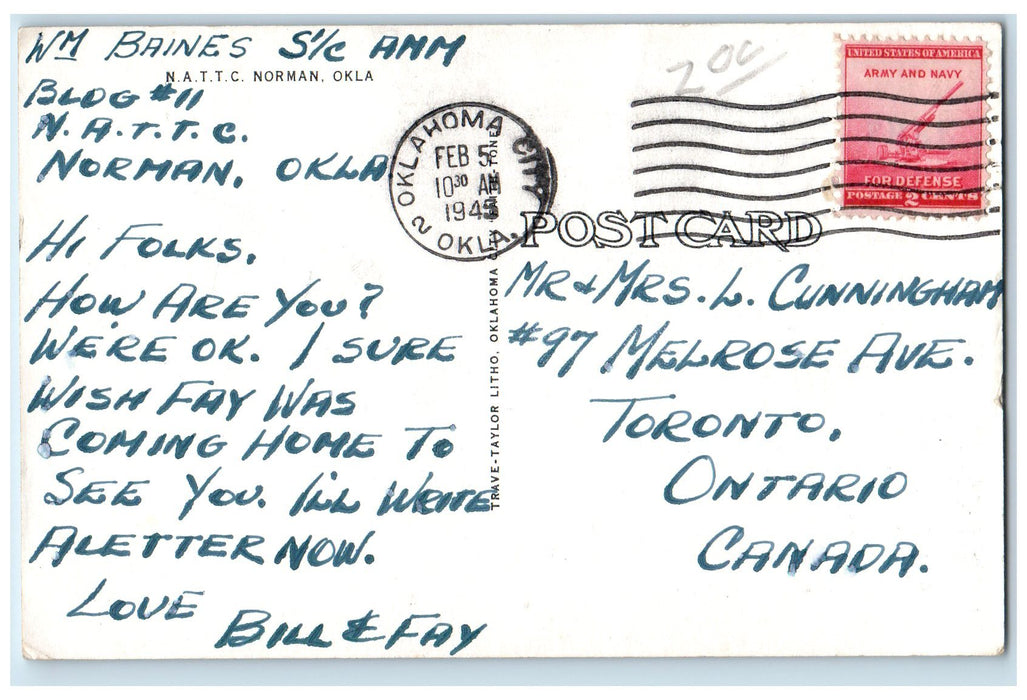 WM BAINES S1/C AMM
N.A.T.T.C. NORMAN, OKLA
BLDG #11
N.A.T.T.C.
NORMAN, OKLA
HI FOLKS,
HOW ARE YOU?
WE'RE OK. I SURE
WISH FAY WAS
COMING HOME TO
SEE YOU. I'LL WRITE
A LETTER NOW.
LOVE
BILL & FAY
200
OKLAHOMA CITY
FEB 5
10 30 AM
1943
2 OKLA.
UNITED STATES OF AMERICA
ARMY AND NAVY
FOR DEFENSE
POSTAGE 2 CENTS
TRAVE-TAYLOR LITHO, OKLAHOMA
POST CARD
MR & MRS. L. CUNNINGHAM
#97 MELROSE AVE.
TORONTO,
ONTARIO
CANADA.